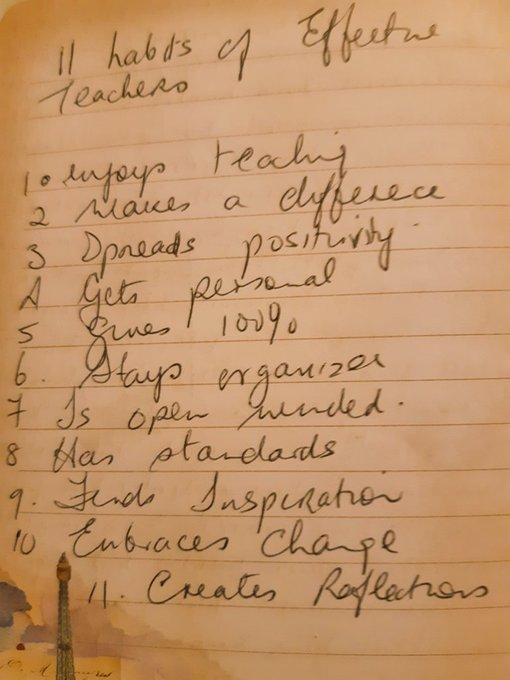 11 habits of Effective
Teachers
1. enjoys teaching
2 Makes a difference
3 Spreads positivity.
4 Gets personal
5 Gives 100%
6. Stays organized
7 Is open minded.
8 Has standards
9. Finds Inspiration
10 Embraces Change
11. Creates Reflections